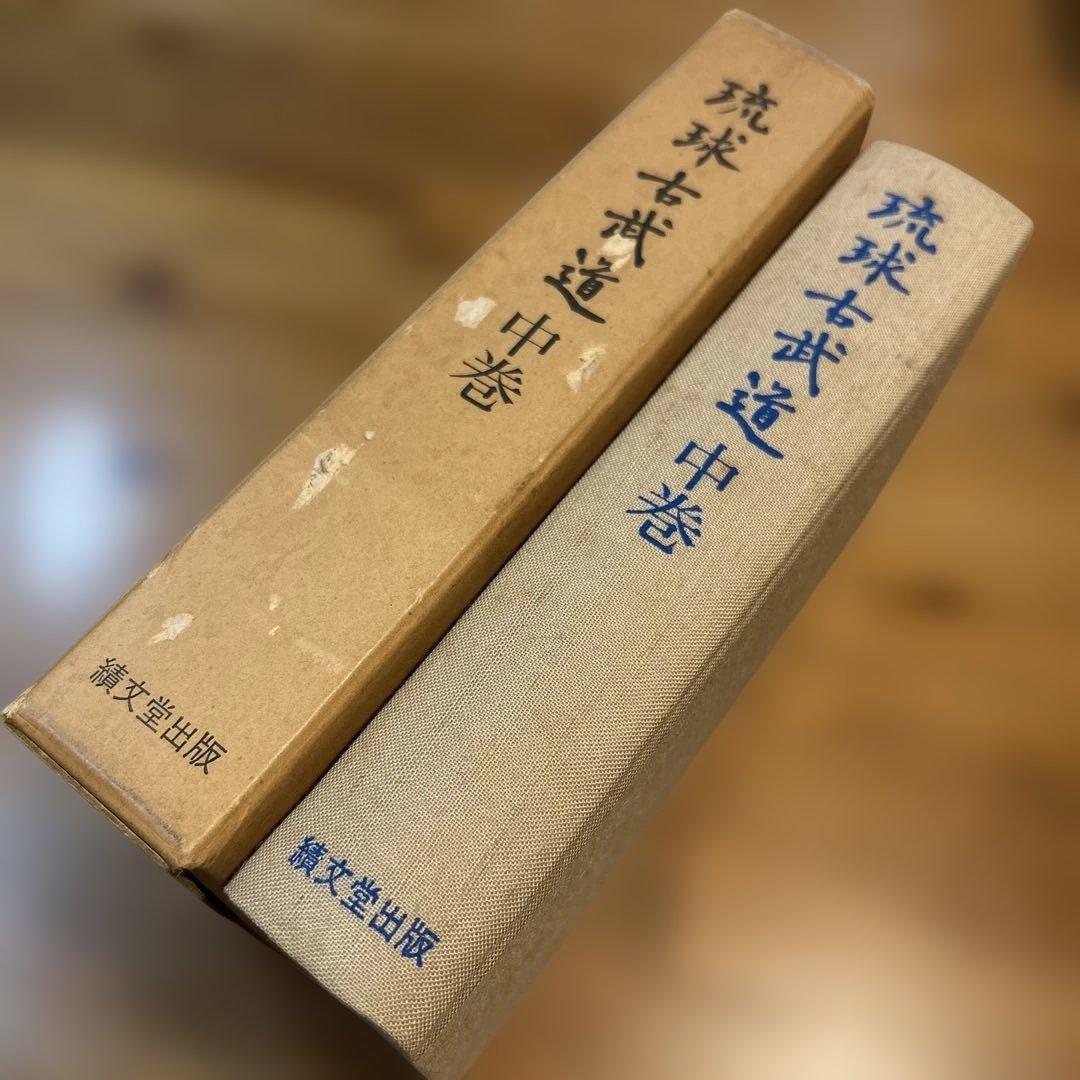 琉球古武道 中巻
績文堂出版
琉球古武道 中巻
績文堂出版